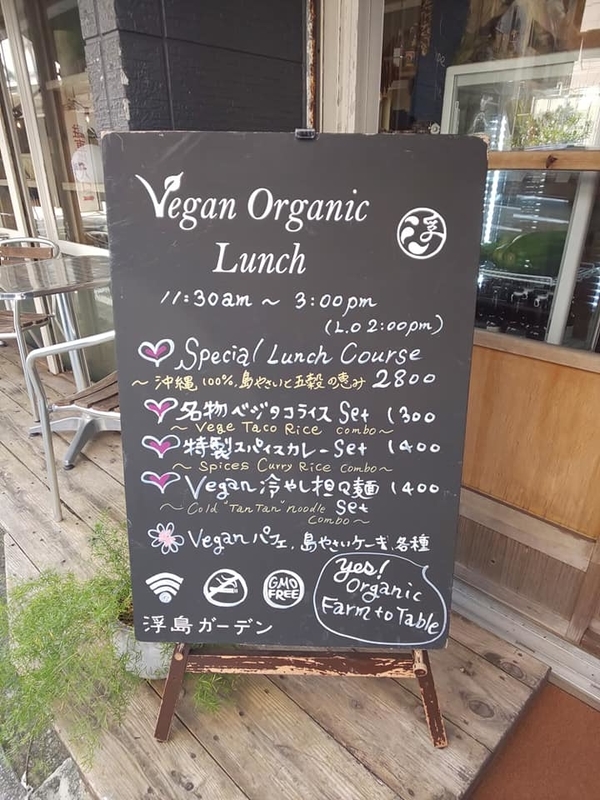 Vegan Organic
Lunch
浮
11:30am ~ 3:00pm
(L.O 2:00pm)
Special Lunch Course
~ 沖縄100%島やさいと五穀の恵み 2800
名物ベジタコライス Set 1300
~ Vege Taco Rice combo ~
特製スパイスカレーSet 1400
~ Spices Curry Rice combo ~
Vegan 冷やし担々麺 Set 1400
~ Cold "TanTan" noodle combo ~
Vegan パフェ, 島やさいケーキ, 各種
GMO
FREE
yes!
Organic
Farm to Table
浮島ガーデン